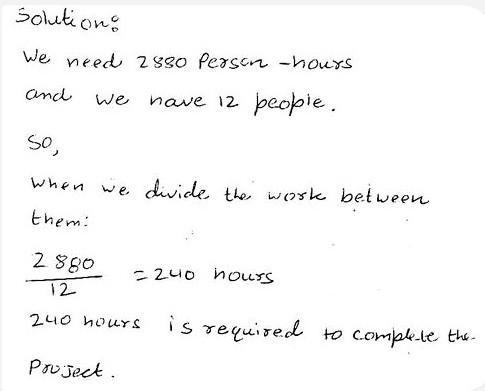 Solution:
We need 2880 Person -hours
and we have 12 people.
So,
when we divide the work between
them:
2880
12
= 240 hours
240 hours is required to complete the
Project.